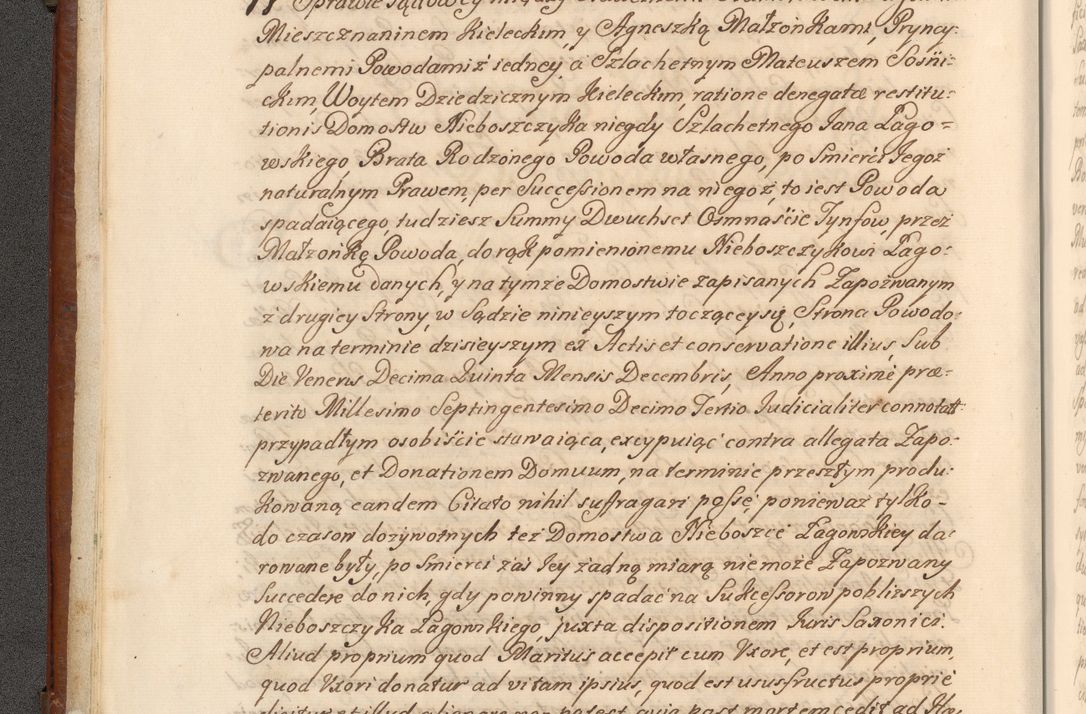 Sprawie sądowey między
Mieszcznaninem Kieleckim, y Agneszką Małzonkami, Pryncy:
palnemi Powodami z iedney, a Szlachetnym Mateuszem Sośni:
ckim, Woytem Dziedzicznym Kieleckim, ratione denegatæ restitu:
tionis Domostw Nieboszczyka niegdy Szlachetnego Jana Łago=
wskiego Brata Rodzonego Powoda własnego, po Smierci Jegoż
naturalnym Prawem, per Successionem na niegoż, to iest Powoda
spadaiącego, tudziesz Summy Dwuchset Osmnaście Tynfow, przez
Małzonkę Powoda, do rąk pomienionemu Nieboszczykowi Łago:
wskiemu danych, y na tymze Domostwie zapisanych Zapozwanym
z drugiey Strony, w Sądzie ninieyszym toczącey się, Strona Powodo:
wa na terminie dzisieyszym ex Actis et conservatione illius, Sub
Die Veneris Decima Quinta Mensis Decembris, Anno proxime præ:
terito Millesimo Septingentesimo Decimo Tertio Judicialiter connotat:
przypadłym osobiście stawaiąca, excypuiąć contra allegata Zapo:
zwanego, et Donationem Domuum, na terminie przeszłym produ:
kowaną, eandem Citato nihil suffragari posse, ponieważ tylko -
do czasow dozywotnych też Domostwa Nieboszce Łagowskiey da:
rowane były, po Smierci zaś Jey zadną miarą nie może Zapozwany
Succedere do nich, gdy powinny spadać na Sukcessorow poblizszych
Nieboszczyka Łagowskiego, juxta dispositionem Juris Saxonici.
Aliud proprium quod Maritus accepit cum Uxore, et est proprium,
quod Uxori donatur ad vitam ipsius, quod est ususfructus proprie
dicitur et illud alienare non potest, quia post mortem cedit ad